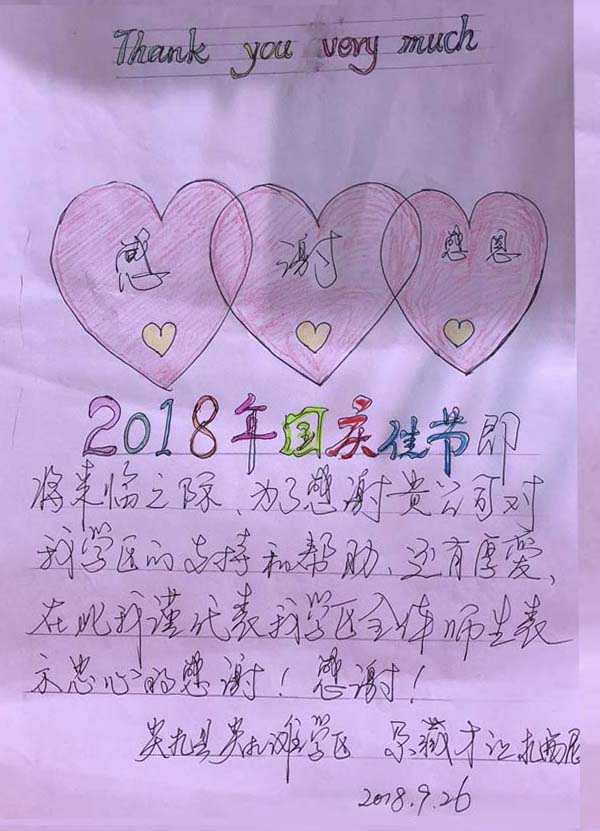 Thank you very much
感 谢 感恩
2018年国庆佳节即
将来临之际、为了感谢贵公司对
我学区的支持和帮助、还有厚爱、
在此我谨代表我学区全体师生表
示忠心的感谢！感谢！
学区
2018.9.26